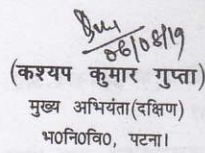 06/08/19
(कश्यप कुमार गुप्ता)
मुख्य अभियंता(दक्षिण)
भ0नि0वि0, पटना।